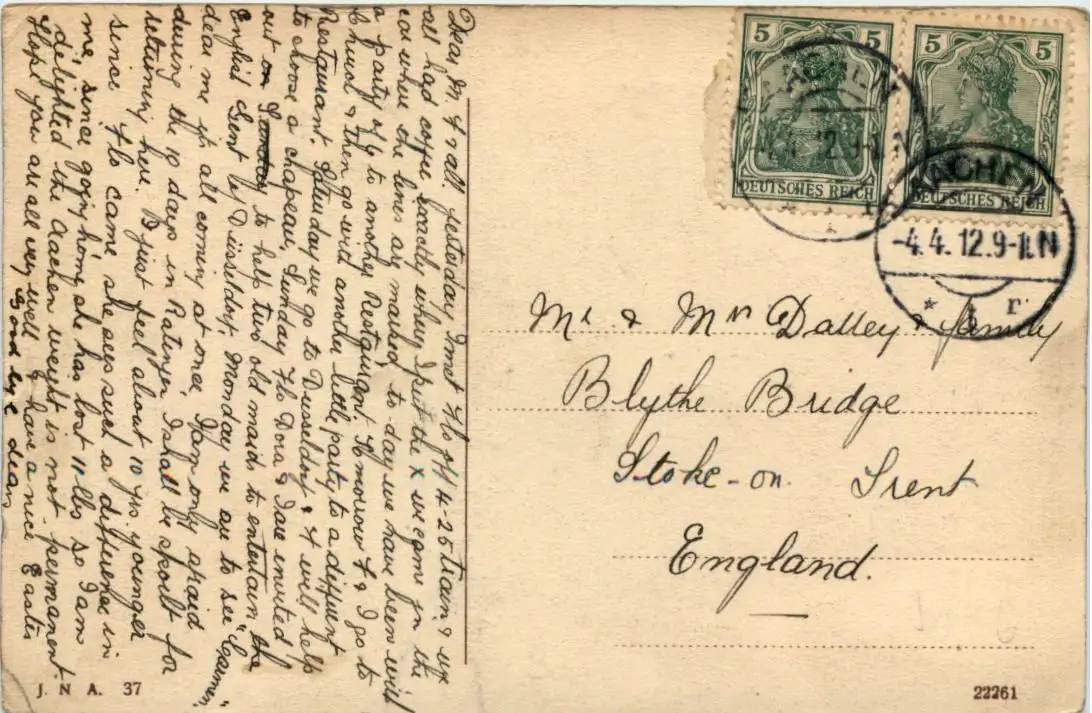 Dear M. & all. Yesterday I met Flo off 4-25 train & we
all had coffee exactly where I put the X we came in the
car where the lines are marked to day we have been with
a party of 9 to another Restaurant. Tomorrow F & I go to
& then go with another little party to a different
Restaurant. Saturday we go to Dusseldorf & F will help
to choose a chapeau, Sunday Flo Dora & I are invited
out on Sunday to help two old maids to entertain the
English Gent by Düsseldorf, Monday we are to see "Carmen"
dear me it's all coming at once. I am only afraid
during the 10 days in Ratingen I shall be spoilt for
returning here. I just feel about 10 yrs. younger
since Flo came she sees such a difference in
me, since going home she has lost 11 lbs so I am
delighted the Aachen weight is not permanent
Hope you are all very well & have a nice Easter
Good bye dears
J. N A. 37
5 5
DEUTSCHES REICH
5 5
DEUTSCHES REICH
AACHEN
-4.4.12.9-1.N
* 1 r
Mr. & Mrs Dalley & family
Blythe Bridge
Stoke-on-Trent
England.
22261